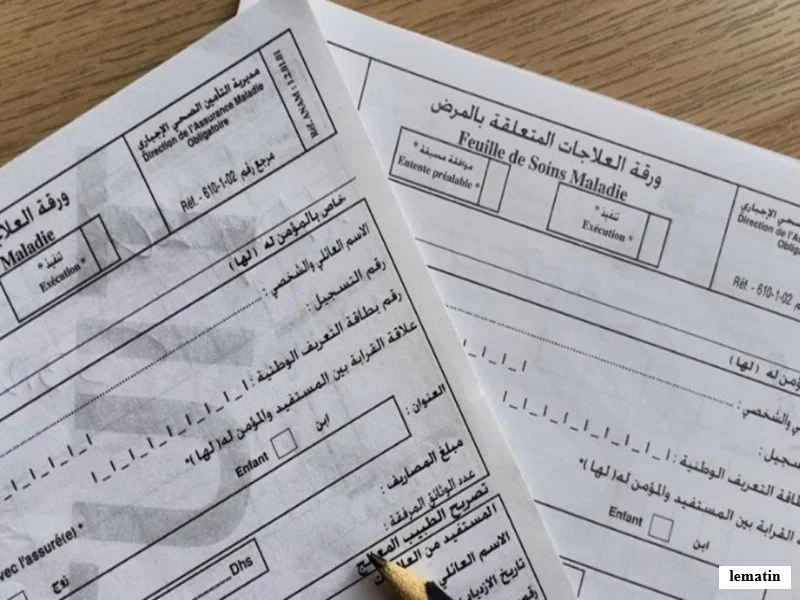 Réf.ANAM : 1.2.01.01
مديرية التأمين الصحي الإجباري
Direction de l'Assurance Maladie
Obligatoire
مرجع رقم 02-1-610
Réf. - 610-1-02
ورقة
Maladie
تنفيذ *
Exécution *
خاص بالمؤمن له (لها)
الاسم العائلي والشخصي :
رقم التسجيل :
رقم بطاقة التعريف الوطنية :
علاقة القرابة بين المستفيد والمؤمن له(لها)*
ابن
Enfant
العنوان :
مبلغ المصاريف :
عدد الوثائق المرفقة :
l'assuré(e) *
زوج
Dhs
تصريح الطبيب المعالج
المستفيد من
الاسم العائلي
تاريخ
رقم
ورقة العلاجات المتعلقة بالمرض
Feuille de Soins Maladie
موافقة مسبقة *
Entente préalable *
تنفيذ *
Exécution *
الصحي الإجباري
Direction de
Réf. - 610-1-02
له (لها)
والشخصي :
التعريف الوطنية :
القرابة بين المستفيد والمؤمن له(لها)*
Enfant
ابن
lematin